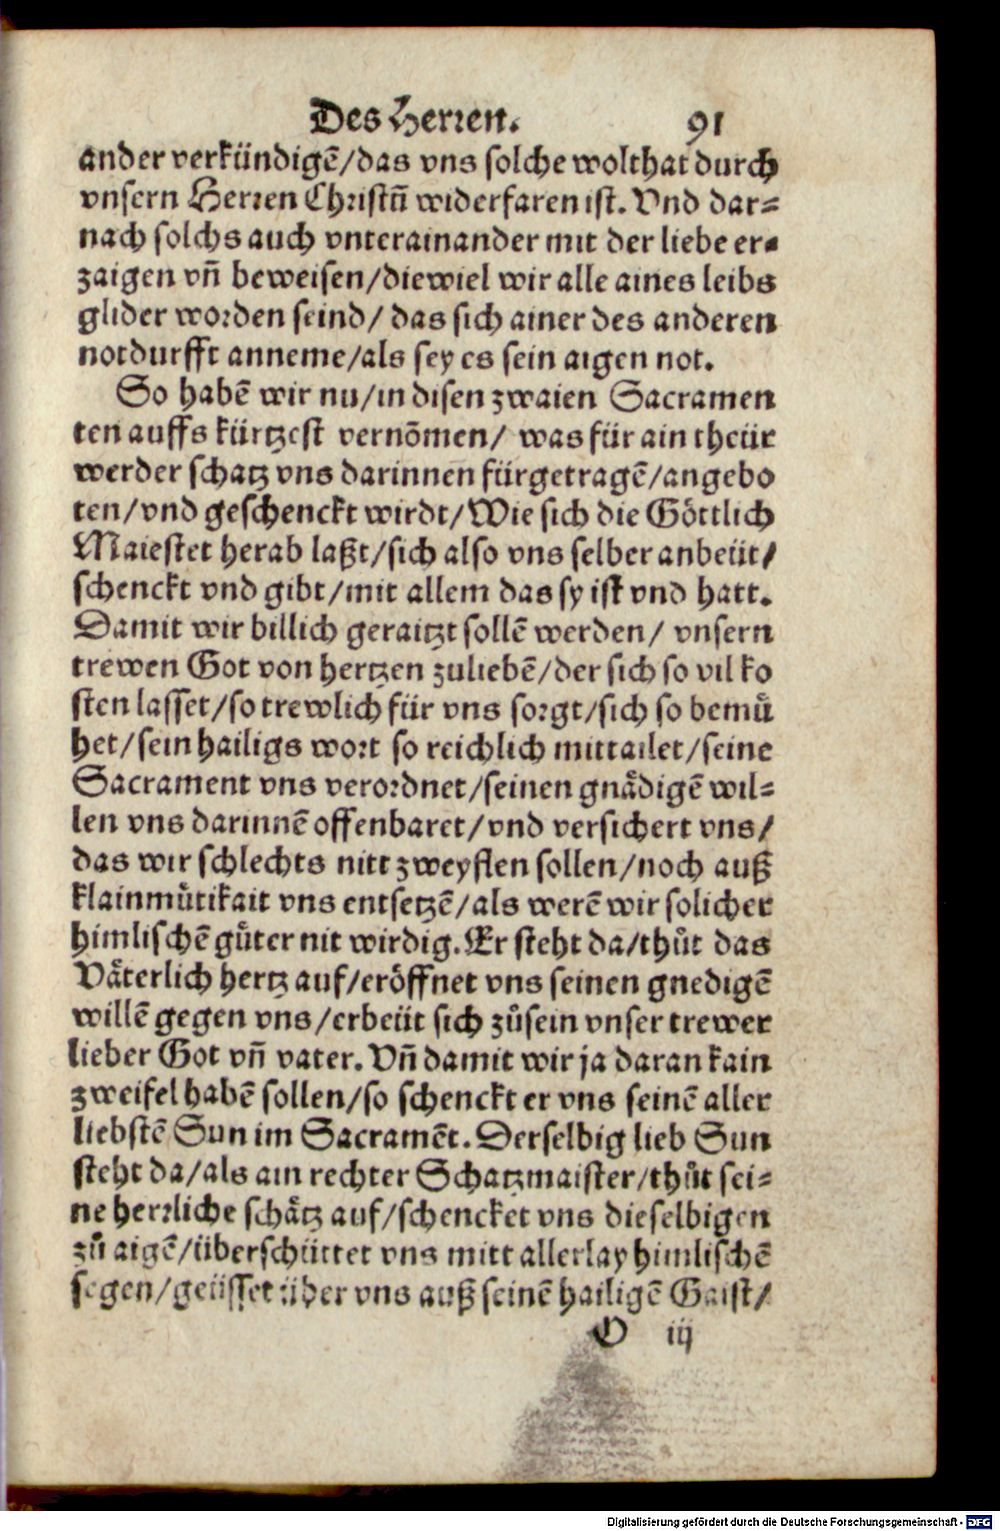 Des Herren. 91
ander verkündigẽ/das vns solche wolthat durch
vnsern Herren Christũ widerfaren ist. Vnd dar=
nach solchs auch vnterainander mit der liebe er=
zaigen vñ beweisen/diewiel wir alle aines leibs
glider worden seind/ das sich ainer des anderen
notdurfft anneme/als sey es sein aigen not.
So habẽ wir nu/in disen zwaien Sacramen
ten auffs kürtzest vernõmen/ was für ain theür
werder schatz vns darinnen fürgetragẽ/angebo
ten/vnd geschenckt wirdt/Wie sich die Göttlich
Maiestet herab laßt/sich also vns selber anbeüt/
schenckt vnd gibt/mit allem das sy ist vnd hatt.
Damit wir billich geraitzt sollẽ werden/ vnsern
trewen Got von hertzen zuliebẽ/der sich so vil ko
sten lasset/so trewlich für vns sorgt/sich so bemuͤ
het/sein hailigs wort so reichlich mittailet/seine
Sacrament vns verordnet/seinen gnaͤdigẽ wil=
len vns darinnẽ offenbaret/vnd versichert vns/
das wir schlechts nitt zweyflen sollen/noch auß
klainmuͤtikait vns entsetzẽ/als werẽ wir solicher
himlischẽ guͤter nit wirdig. Er steht da/thuͦt das
Vaͤterlich hertz auf/eroͤffnet vns seinen gnedigẽ
willẽ gegen vns/erbeüt sich zuͦsein vnser trewer
lieber Got vñ vater. Vñ damit wir ja daran kain
zweifel habẽ sollen/so schenckt er vns seinẽ aller
liebstẽ Sun im Sacramẽt. Derselbig lieb Sun
steht da/als ain rechter Schatzmaister/thuͦt sei=
ne herrliche schaͤtz auf/schencket vns dieselbigen
zuͦ aigẽ/überschüttet vns mitt allerlay himlischẽ
segen/geüsset über vns auß seinẽ hailigẽ Gaist/
O iij
Digitalisierung gefördert durch die Deutsche Forschungsgemeinschaft - DFG